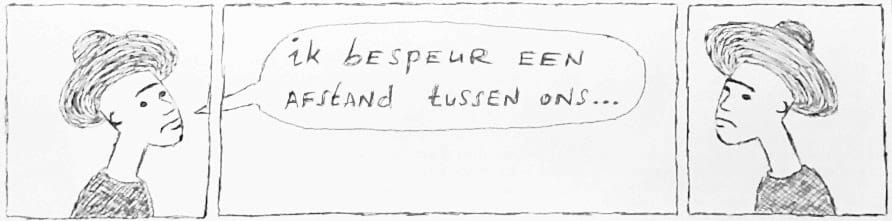 ik bespeur een
afstand tussen ons...